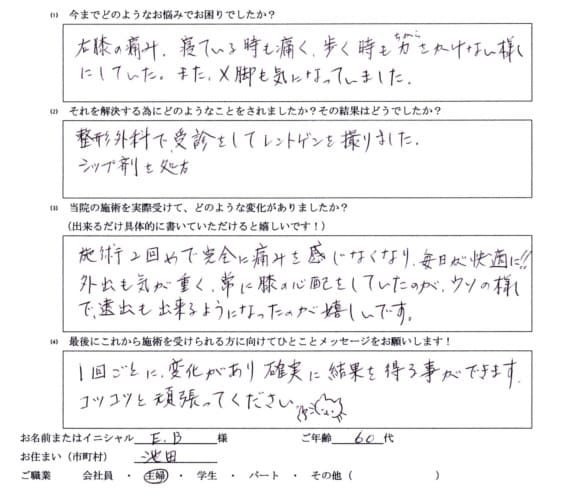 (1) 今までどのようなお悩みでお困りでしたか？
右膝の痛み、寝ている時も痛く、歩く時も力をかけない様に
にしていた。また、X脚も気になっていました。
(2) それを解決する為にどのようなことをされましたか？その結果はどうでしたか？
整形外科で受診をしてレントゲンを撮りました。
シップ剤を処方
(3) 当院の施術を実際受けて、どのような変化がありましたか？
（出来るだけ具体的に書いていただけると嬉しいです！）
施術2回めで完全に痛みを感じなくなり、毎日が快適に!!
外出も気が重く、常に膝の心配をしていたのが、ウソの様
で、遠出も出来るようになったのが嬉しいです。
(4) 最後にこれから施術を受けられる方に向けてひとことメッセージをお願いします！
1回ごとに、変化があり確実に結果を得る事ができます。
コツコツと頑張ってください
お名前またはイニシャル E.B 様 ご年齢 60 代
お住まい（市町村） 池田
ご職業 会社員 ・ 主婦 ・ 学生 ・ パート ・ その他（ ）